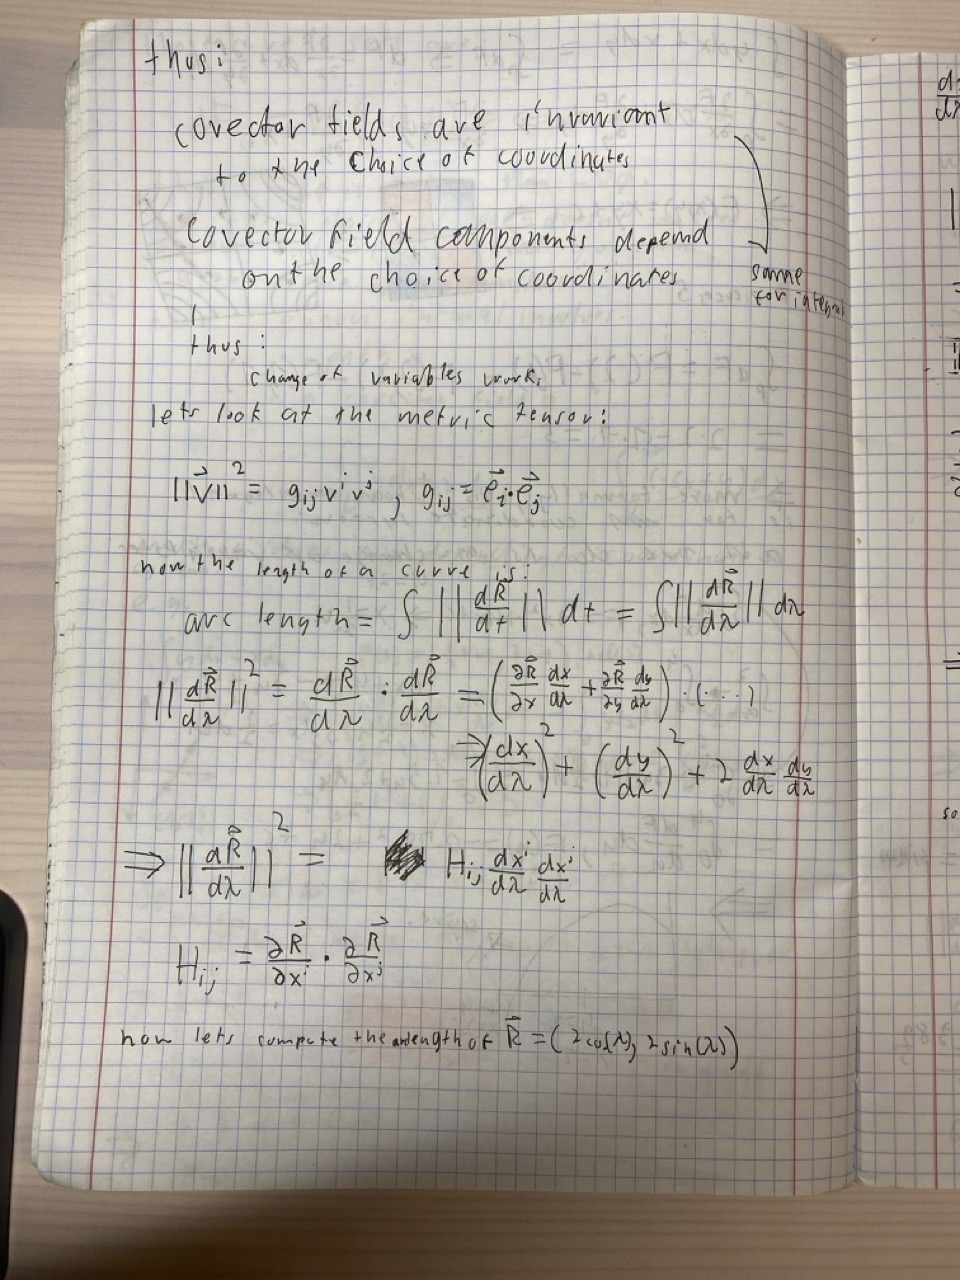 thus:
covector fields are invariant
to the choice of coordinates
Covector field components depend
on the choice of coordinates
same
for integral
thus:
change of variables work,
lets look at the metric tensor:
||v⃗||² = g_ij v^i v^j , g_ij = e⃗_i · e⃗_j
now the length of a curve is:
arc length = ∫ ||dR⃗/dt|| dt = ∫ ||dR⃗/dλ|| dλ
||dR⃗/dλ||² = dR⃗/dλ · dR⃗/dλ = (∂R⃗/∂x dx/dλ + ∂R⃗/∂y dy/dλ) · (...)
→ (dx/dλ)² + (dy/dλ)² + 2 dx/dλ dy/dλ
⇒ ||dR⃗/dλ||² = H_ij dx^i/dλ dx^j/dλ
H_ij = ∂R⃗/∂x^i · ∂R⃗/∂x^j
now lets compute the length of R⃗ = (2cos(λ), 2sin(λ))
so